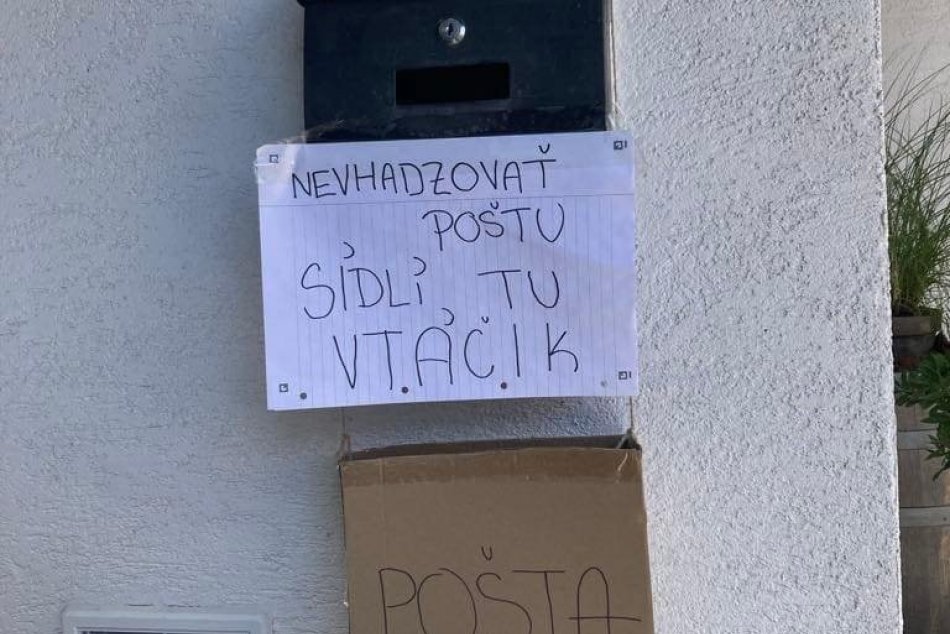 NEVHADZOVAŤ
POŠTU
SÍDLÍ TU
VTÁČIK
POŠTA